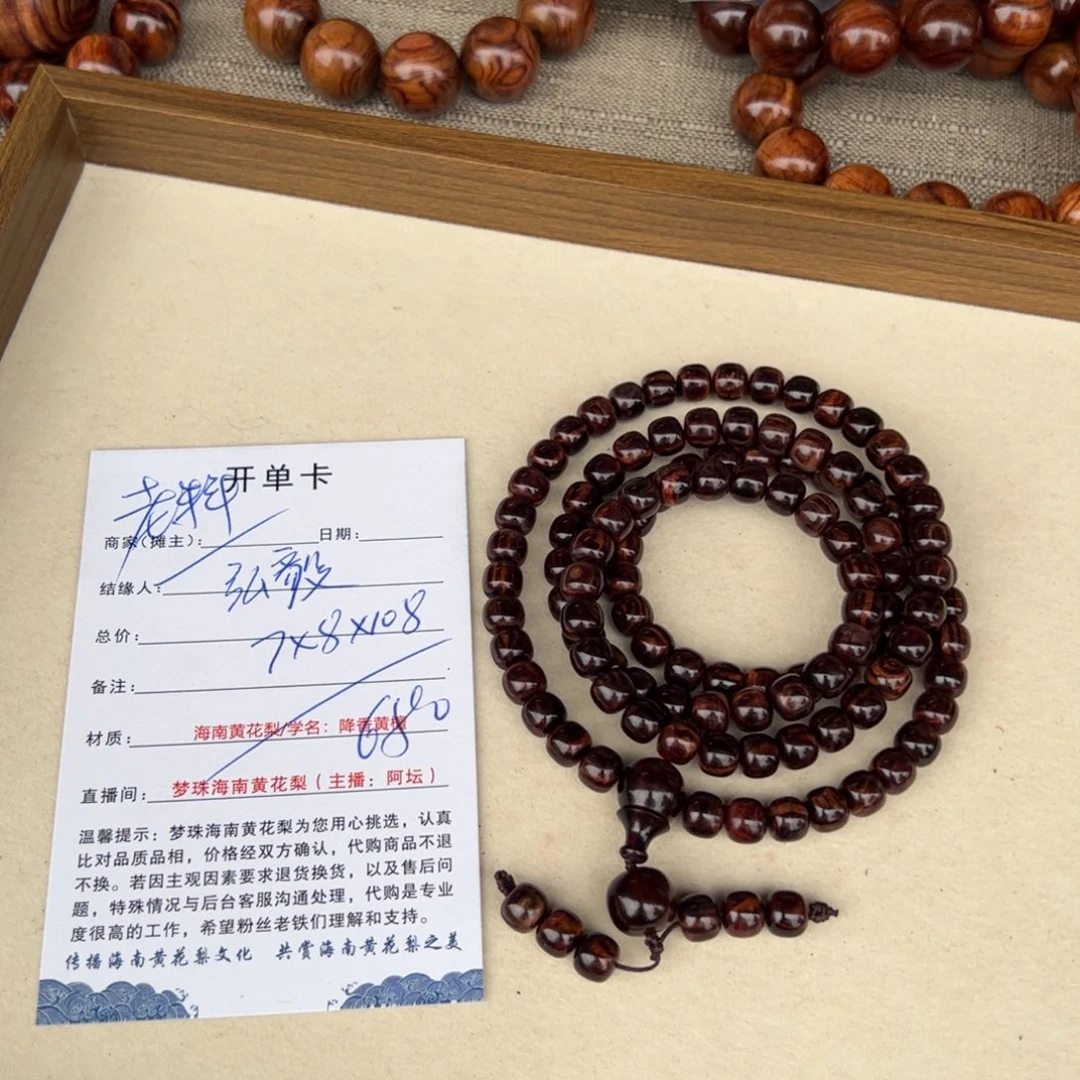 开单卡
老料
商家(摊主): 日期:
结缘人: 弘毅
总价: 7×8×108
备注:
材质: 海南黄花梨/学名: 降香黄檀
680
直播间: 梦珠海南黄花梨(主播: 阿坛)
温馨提示: 梦珠海南黄花梨为您用心挑选, 认真
比对品质品相, 价格经双方确认, 代购商品不退
不换。若因主观因素要求退货换货, 以及售后问
题, 特殊情况与后台客服沟通处理, 代购是专业
度很高的工作, 希望粉丝老铁们理解和支持。
传播海南黄花梨文化 共赏海南黄花梨之美